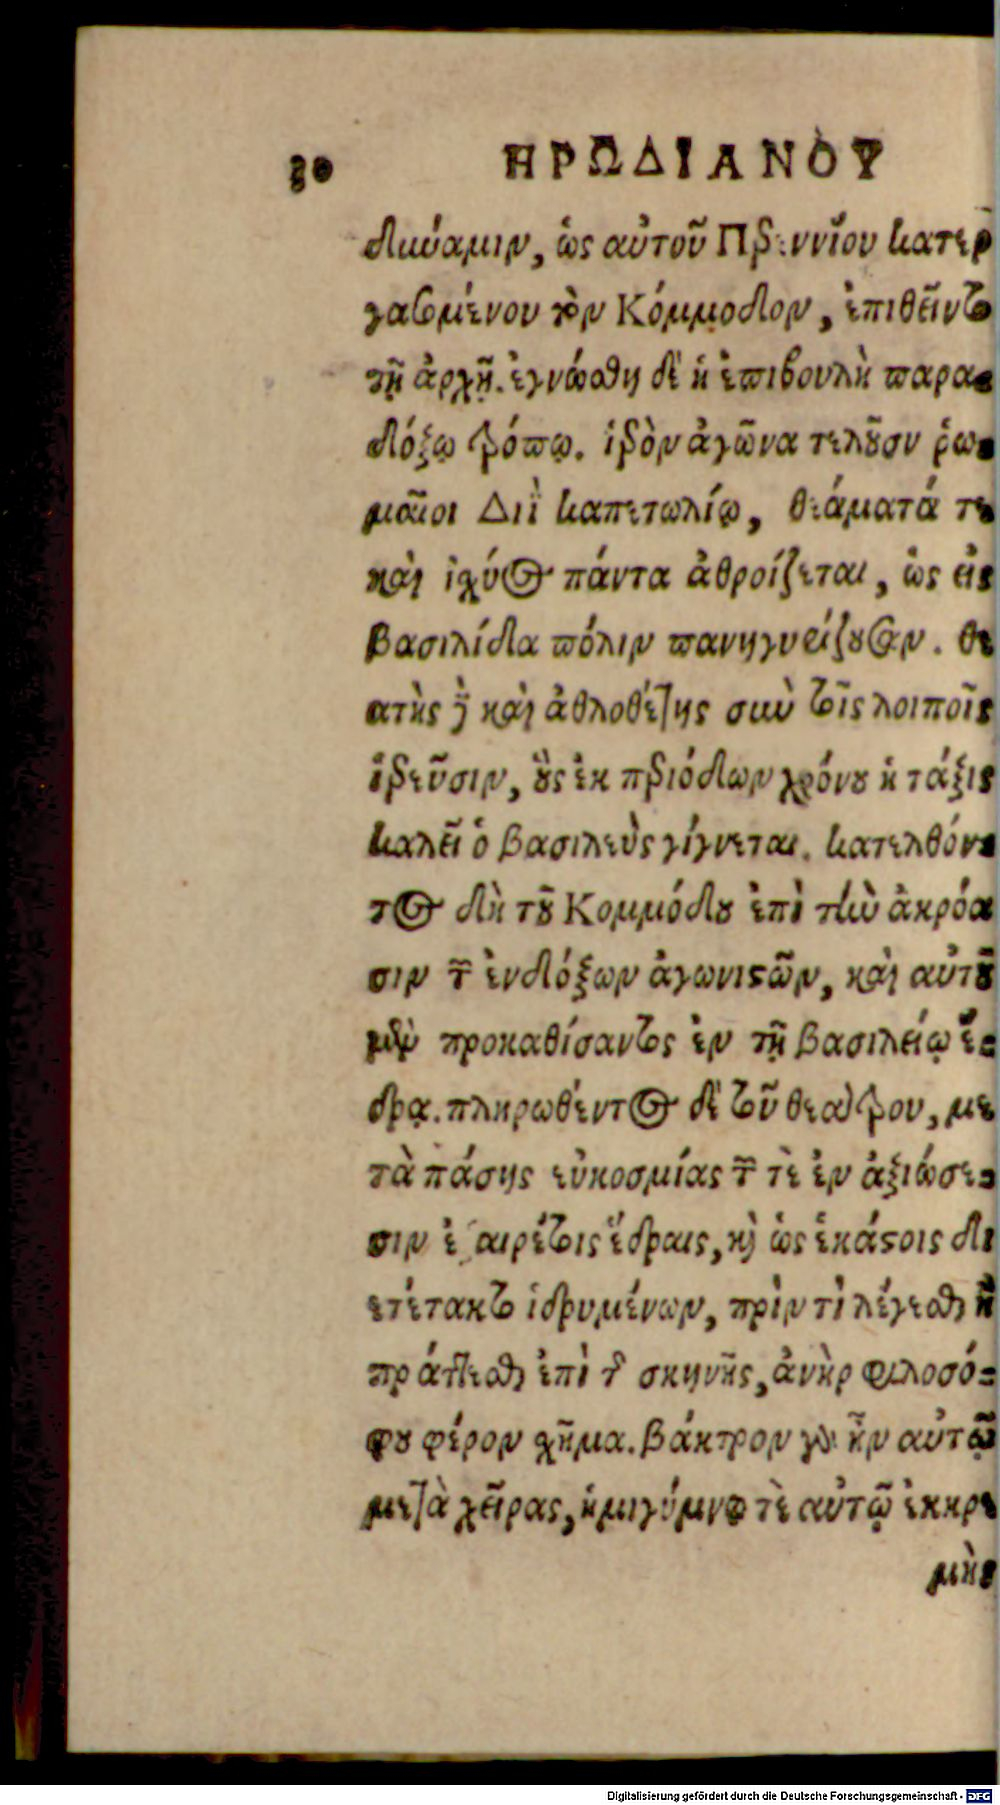 30 ΗΡΩΔΙΑΝΟΥ
δύναμιν, ὡς αὐτοῦ Περεννίου κατερ
γασομένου τὸν Κόμμοδον, ἐπιθεῖντο
τῇ ἀρχῇ. ἐγνώσθη δὲ ἡ ἐπιβουλὴ παρα-
δόξῳ τρόπῳ. ἱερὸν ἀγῶνα τελοῦσι ῥω-
μαῖοι Διῒ καπετωλίῳ, θεάματά τε
καὶ ἰχύος πάντα ἀθροίζεται, ὡς εἰς
βασιλίδα πόλιν πανηγυρίζουσαν. θε
ατὴς δὲ καὶ ἀθλοθέτης σὺν τοῖς λοιποῖς
ἱερεῦσιν, οὓς ἐκ περιόδων χρόνου ἡ τάξις
καλεῖ ὁ βασιλεὺς γίγνεται. κατελθόν-
τος δὴ τοῦ Κομμόδου ἐπὶ τὴν ἀκρόα
σιν τῶν ἐνδόξων ἀγωνιστῶν, καὶ αὐτοῦ
μὲν προκαθίσαντος ἐν τῇ βασιλείῳ ἕ-
δρᾳ. πληρωθέντος δὲ τοῦ θεάτρου, με
τὰ πάσης εὐκοσμίας τῶν τὲ ἐν ἀξιώσε-
σιν ἐξαιρέτοις ἕδραις, καὶ ὡς ἑκάστοις δι
ετέτακτο ἱδρυμένων, πρὶν τὶ λέγεσθαι ἢ
πράττεσθαι ἐπὶ τῆς σκηνῆς, ἀνὴρ φιλοσό-
φου φέρον χῆμα. βάκτρον γὰρ ἦν αὐτῷ
μετὰ χεῖρας, ἡμιγύμνῳ τὲ αὐτῷ ἐκκρε
μὴς